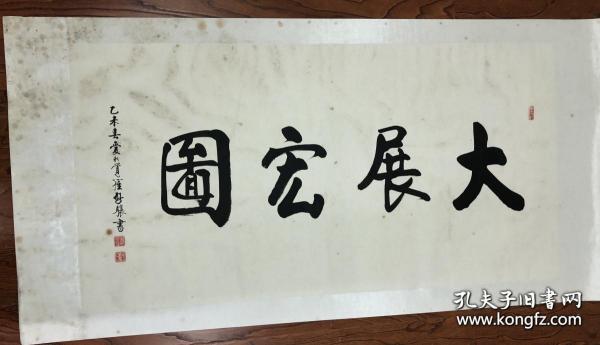 大展宏圖
乙未春
書
孔夫子旧书网
www.kongfz.com